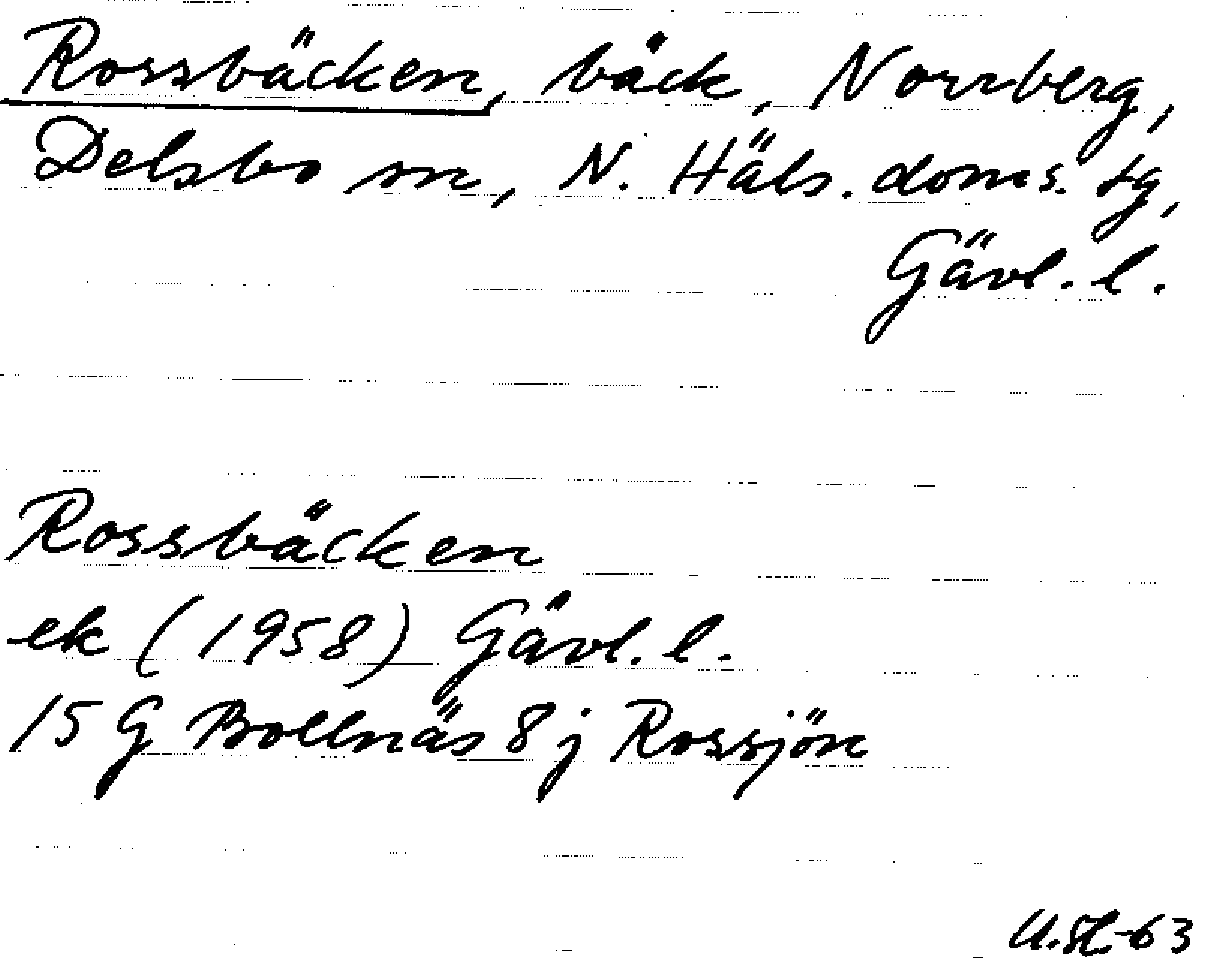 Rossbäcken, bäck, Norrberg,
Delsbo sn, N. Häls. doms. tg,
Gävl. l.
Rossbäcken
ek (1958) Gävl. l.
15 G Bollnäs 8 j Rossjön
-63